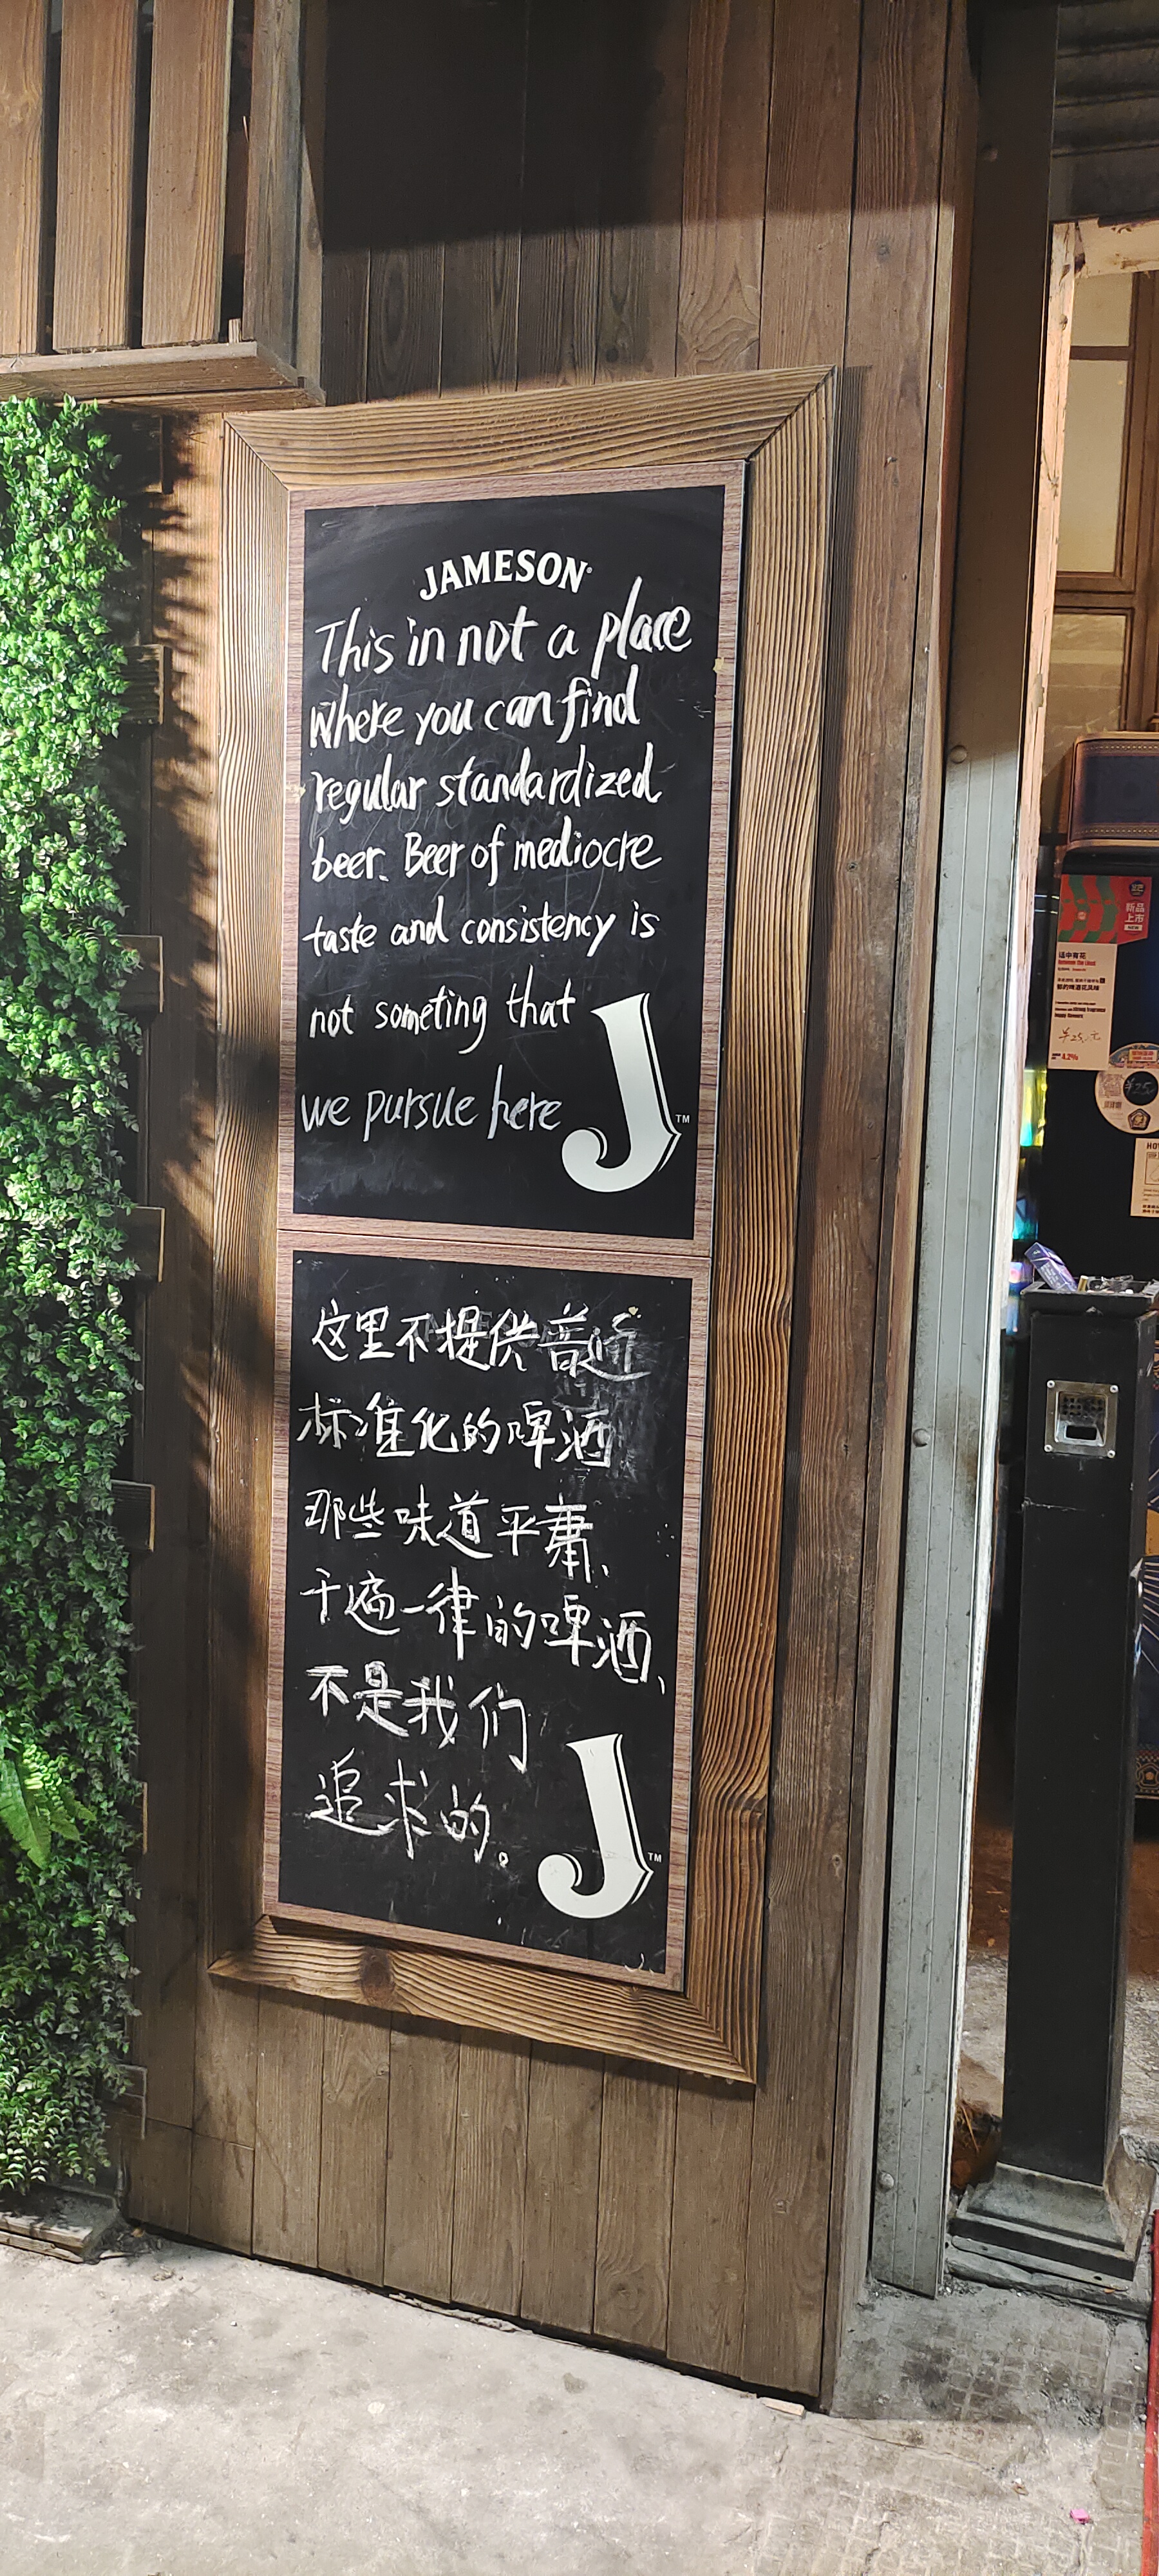 JAMESON
This in not a place
Where you can find
regular standardized
beer. Beer of mediocre
taste and consistency is
not someting that
we pursue here
J
TM
这里不提供普通
标准化的啤酒
那些味道平庸、
千遍一律的啤酒、
不是我们
追求的。
J
TM
新品
上市
NEW
适中有花
4.2%